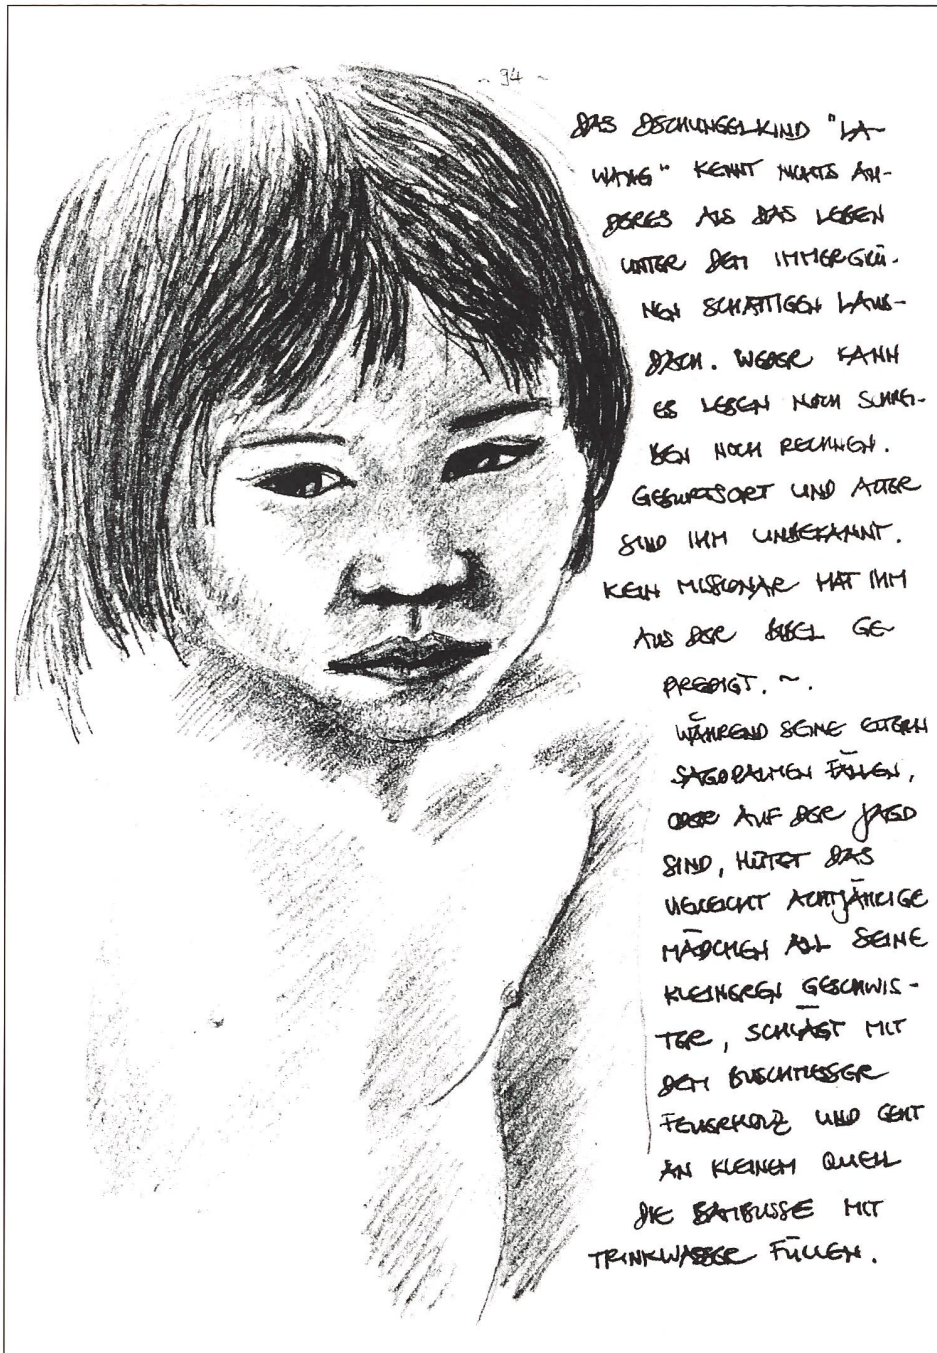 - 94 -
DAS DSCHUNGELKIND "LA-
WANG" KENNT NICHTS AN-
DERES ALS DAS LEBEN
UNTER DEM IMMERGRÜ-
NEN SCHATTIGEN LAUB-
DACH. WEDER KANN
ES LESEN NOCH SCHREI-
BEN NOCH RECHNEN.
GEBURTSORT UND ALTER
SIND IHM UNBEKANNT.
KEIN MISSIONAR HAT IHM
AUS DER BIBEL GE
PREDIGT. ~.
WÄHREND SEINE ELTERN
SAGOPALMEN FÄLLEN,
ODER AUF DER JAGD
SIND, HÜTET DAS
VIELLEICHT ACHTJÄHRIGE
MÄDCHEN ALL SEINE
KLEINEREN GESCHWIS-
TER, SCHLÄGT MIT
DEM BUSCHMESSER
FEUERHOLZ UND GEHT
AN KLEINEM QUELL
DIE BAMBUSSE MIT
TRINKWASSER FÜLLEN.